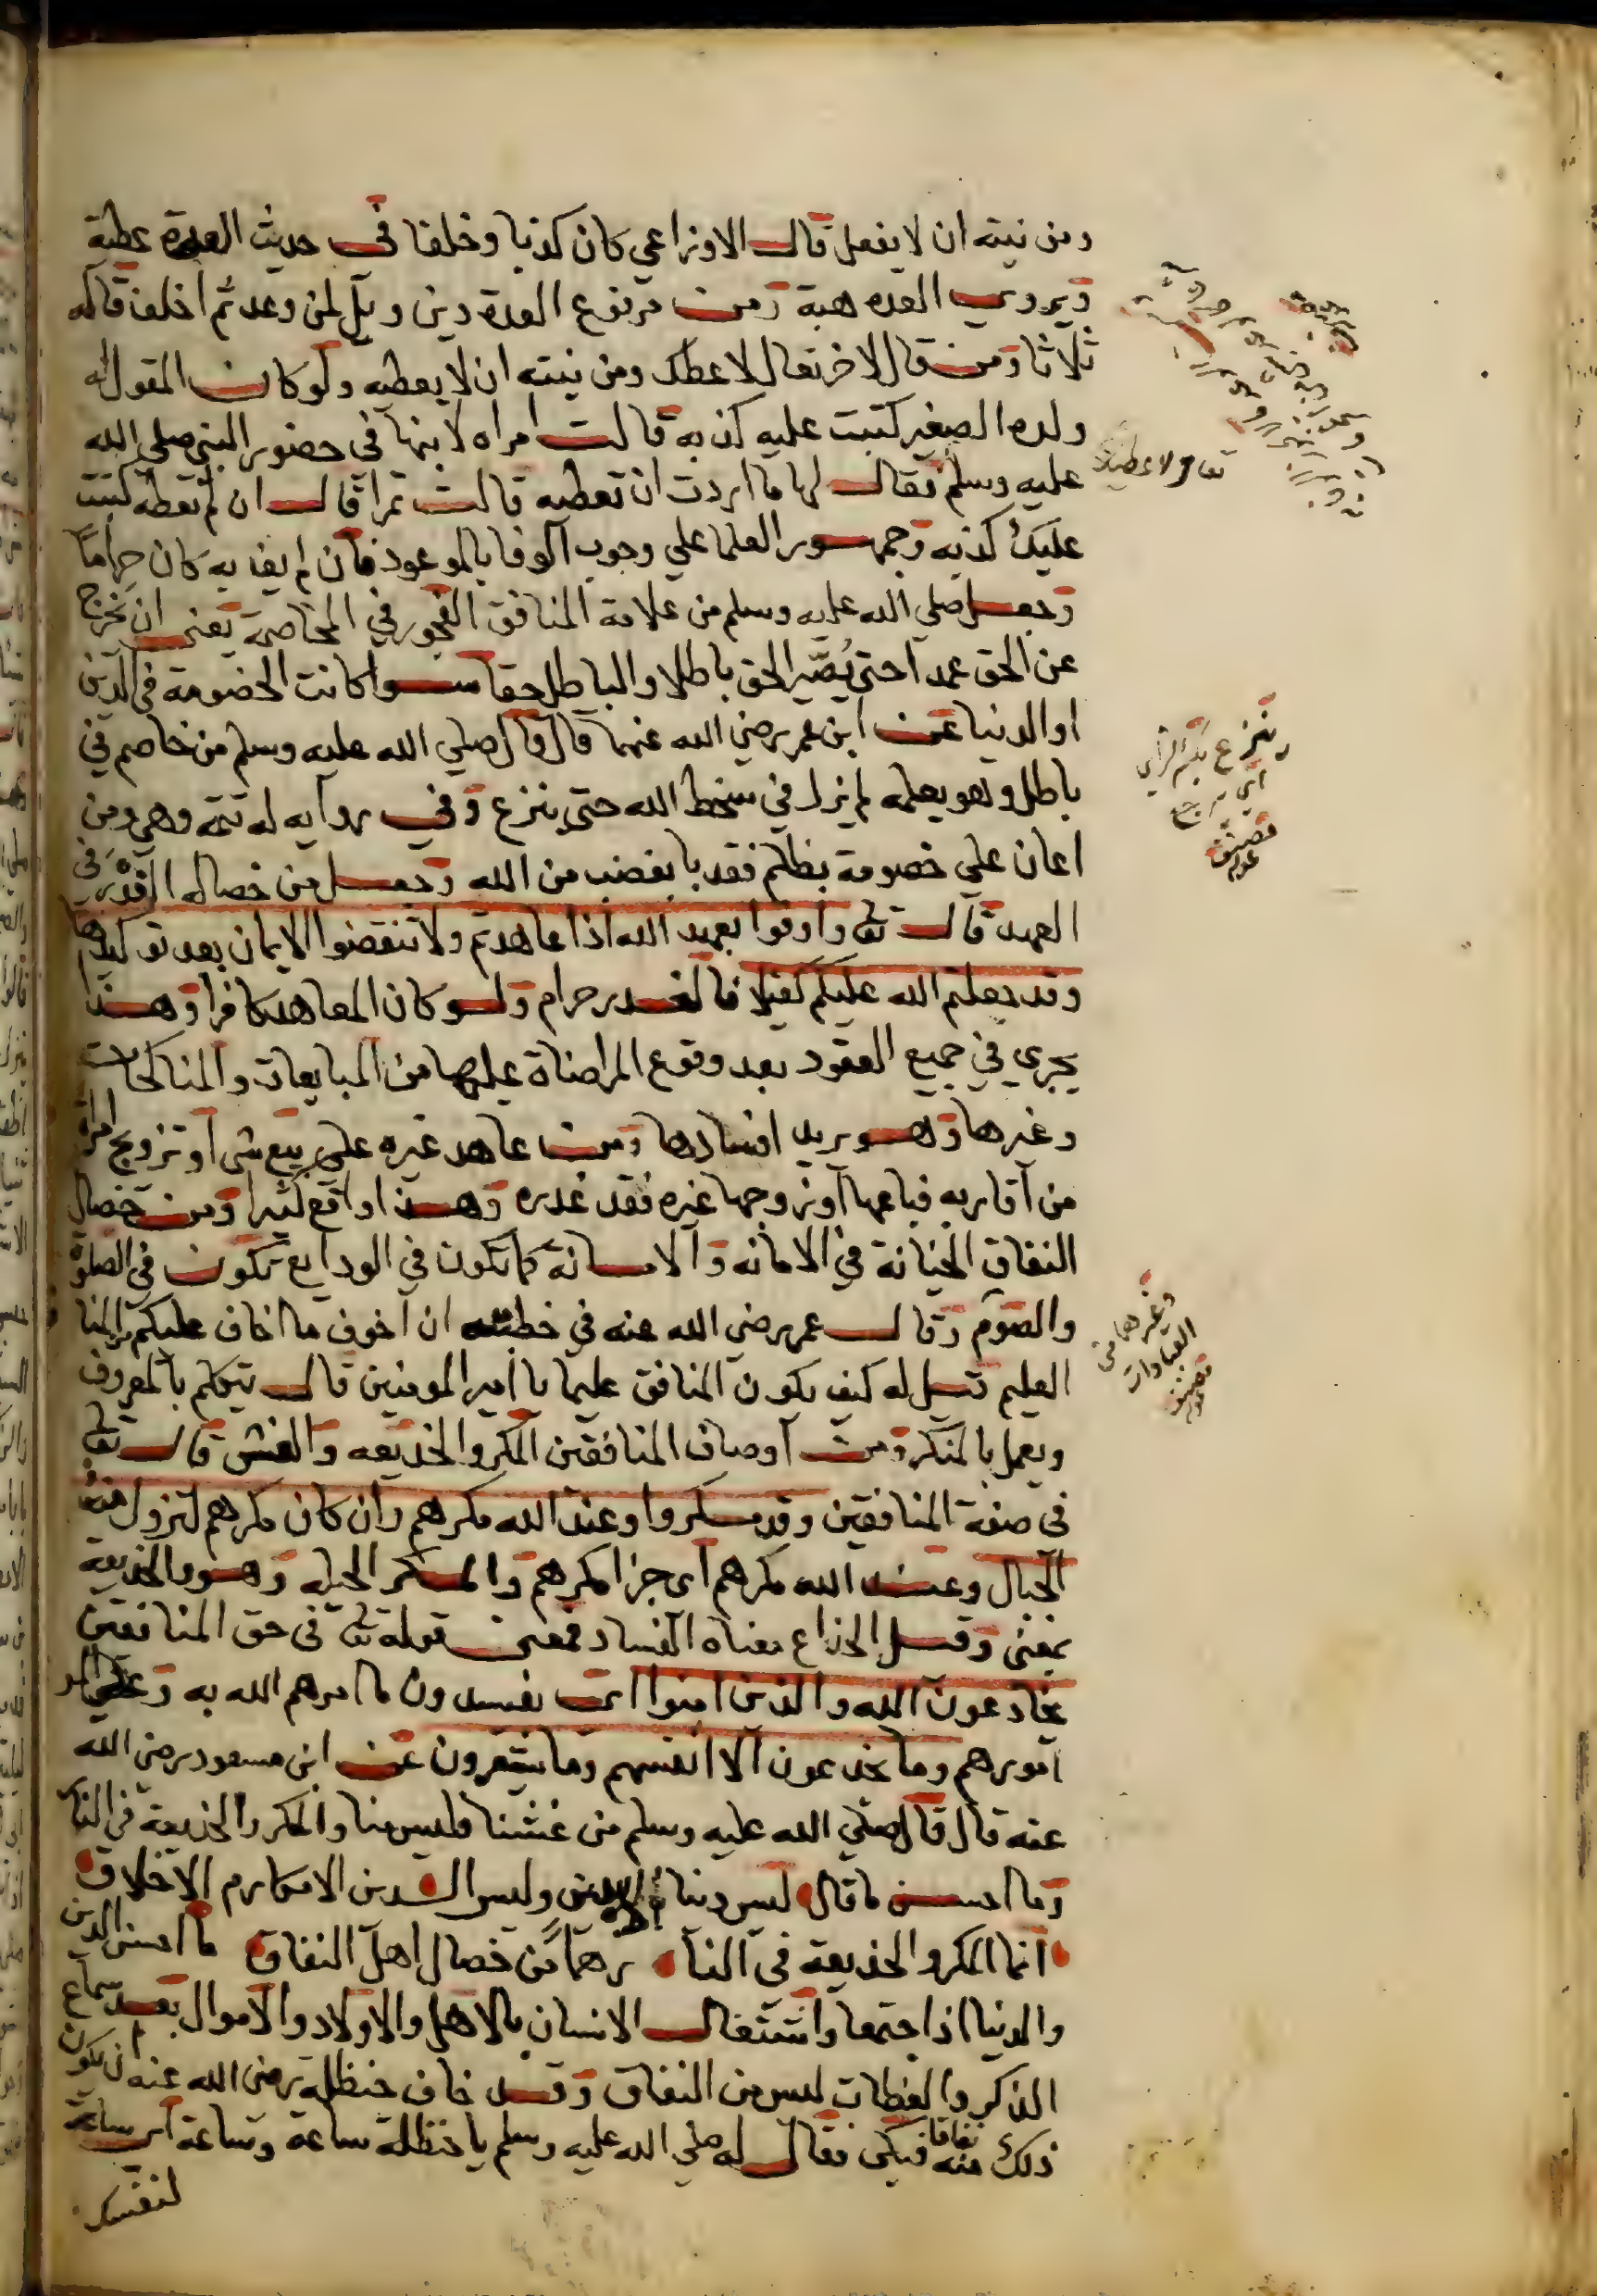 ومن نيته ان لا يفعل قال الاوزاعي كان كذبا وخلفا في حديث العدة عطية
ويروي العده هبة ومن مرفوع العدة دين ويل لمن وعد ثم اخلف قاله
ثلاثا ومن قال لاخر تعال لاعطك ومن نيته ان لا يعطيه ولو كان المقول له
ولده الصغير كتبت عليه كذبه قالت امراه لابنها في حضور النبي صلي الله
تعال لاعطيك
عليه وسلم فقال لها ما اردت ان تعطيه قالت تمرا قال ان لم تعطه كتبت
عليك كذبه وجمهور العلما علي وجوب الوفا بالموعود فان لم يف به كان حراما
وجعل صلي الله عليه وسلم من علامة المنافق الفجور في المخاصمة يعني ان يخرج
عن الحق عمدا حتي يُصَيّر الحق باطلا والباطل حقا سوا كانت الخصومة في الدين
او الدنيا عن ابن عمر رضي الله عنهما قال قال صلي الله عليه وسلم من خاصم في
ينزع بكسر الزاي
اي يرجع
باطل وهو يعلمه لم يزل في سخط الله حتي ينزع وفي روايه له تتمة وهي ومن
اعان علي خصومة بظلم فقد با بغضب من الله وجعل من خصاله الغدر في
العهد قال تعالى واوفوا بعهد الله اذا عاهدتم ولا تنقضوا الايمان بعد توكيدها
وقد جعلتم الله عليكم كفيلا فالغدر حرام ولو كان المعاهد كافرا وهذا
يجري في جميع العقود بعد وقوع المراضاة عليها من المبايعات والمناكحات
وغيرها وهو يريد افسادها ومن عاهد غيره علي بيع شي او تزويج امراة
من اقاربه فباعها او زوجها غيره فقد غدره وهذا واقع كثيرا ومن خصال
النفاق الخيانة في الامانه والامانة كما تكون في الودايع تكون في الصلوة
وغيرهما من
العبادات
والصوم وقال عمر رضي الله عنه في خطبته ان اخوف ما اخاف عليكم المنافق
العليم قيل له كيف يكون المنافق عليما يا امير المومنين قال يتكلم بالمعروف
ويعمل بالمنكر ومن اوصاف المنافقين المكر والخديعه والغش قال تعالى
في صفة المنافقين وقد مكروا وعند الله مكرهم وان كان مكرهم لتزول منه
الجبال وعند الله مكرهم اي جزا مكرهم والمكر الحيله وهو والخديعة
بمعني وقيل الخداع معناه الفساد فمعني قوله تعالى في حق المنافقين
يخادعون الله والذين امنوا اي يفسدون ما امرهم الله به
امورهم وما يخدعون الا انفسهم وما يشعرون عن ابن مسعود رضي الله
عنه قال قال صلي الله عليه وسلم من غشنا فليس منا والمكر والخديعة في النار
وما احسن ما قال ليس دنيا الا بدين وليس الدين الا مكارم الاخلاق
انما المكر والخديعة في النار هما من خصال اهل النفاق ما احسن الدين
والدنيا اذا اجتمعا واشتغال الانسان بالاهل والاولاد والاموال بعد سماع
الذكر والعظات ليس من النفاق وقد خاف حنظلة رضي الله عنه ان يكون
ذلك منه نفاقا فبكي فقال له صلي الله عليه وسلم يا حنظلة ساعة وساعة اي ساعة
لنفسك